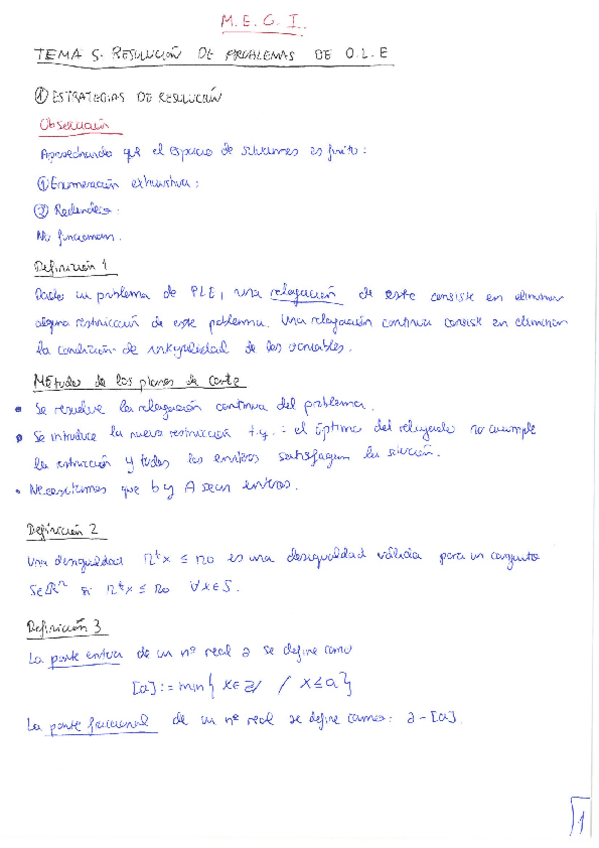 M.E.C.I.
TEMA 5. RESOLUCIÓN DE PROBLEMAS DE O.L.E
① ESTRATEGIAS DE RESOLUCIÓN
Observación
Aprovechando que el espacio de soluciones es finito:
① Enumeración exhaustiva:
② Redondeo:
No funcionan.
Definición 1
Dado un problema de PLE, una relajación de este consiste en eliminar
alguna restricción de este problema. Una relajación continua consist en eliminar
la condición de integralidad de las variables.
Métodos de los planos de corte
• Se resuelve la relajación continua del problema.
• Se introduce la nueva restricción t.q. : el óptimo del relajado no cumple
la restricción y todos los enteros satisfagan la
• Necesitamos que b y A sean enteros.
Definición 2
Una desigualdad π^t x ≤ π0 es una desigualdad válida para un conjunto
S∈ℝ^n si π^t x ≤ π0 ∀x∈S.
Definición 3
La parte entera de un nº real a se define como
[a]:= min{ x∈ℤ / x≤a}
La parte fraccional de un nº real se define como: a-[a].
1